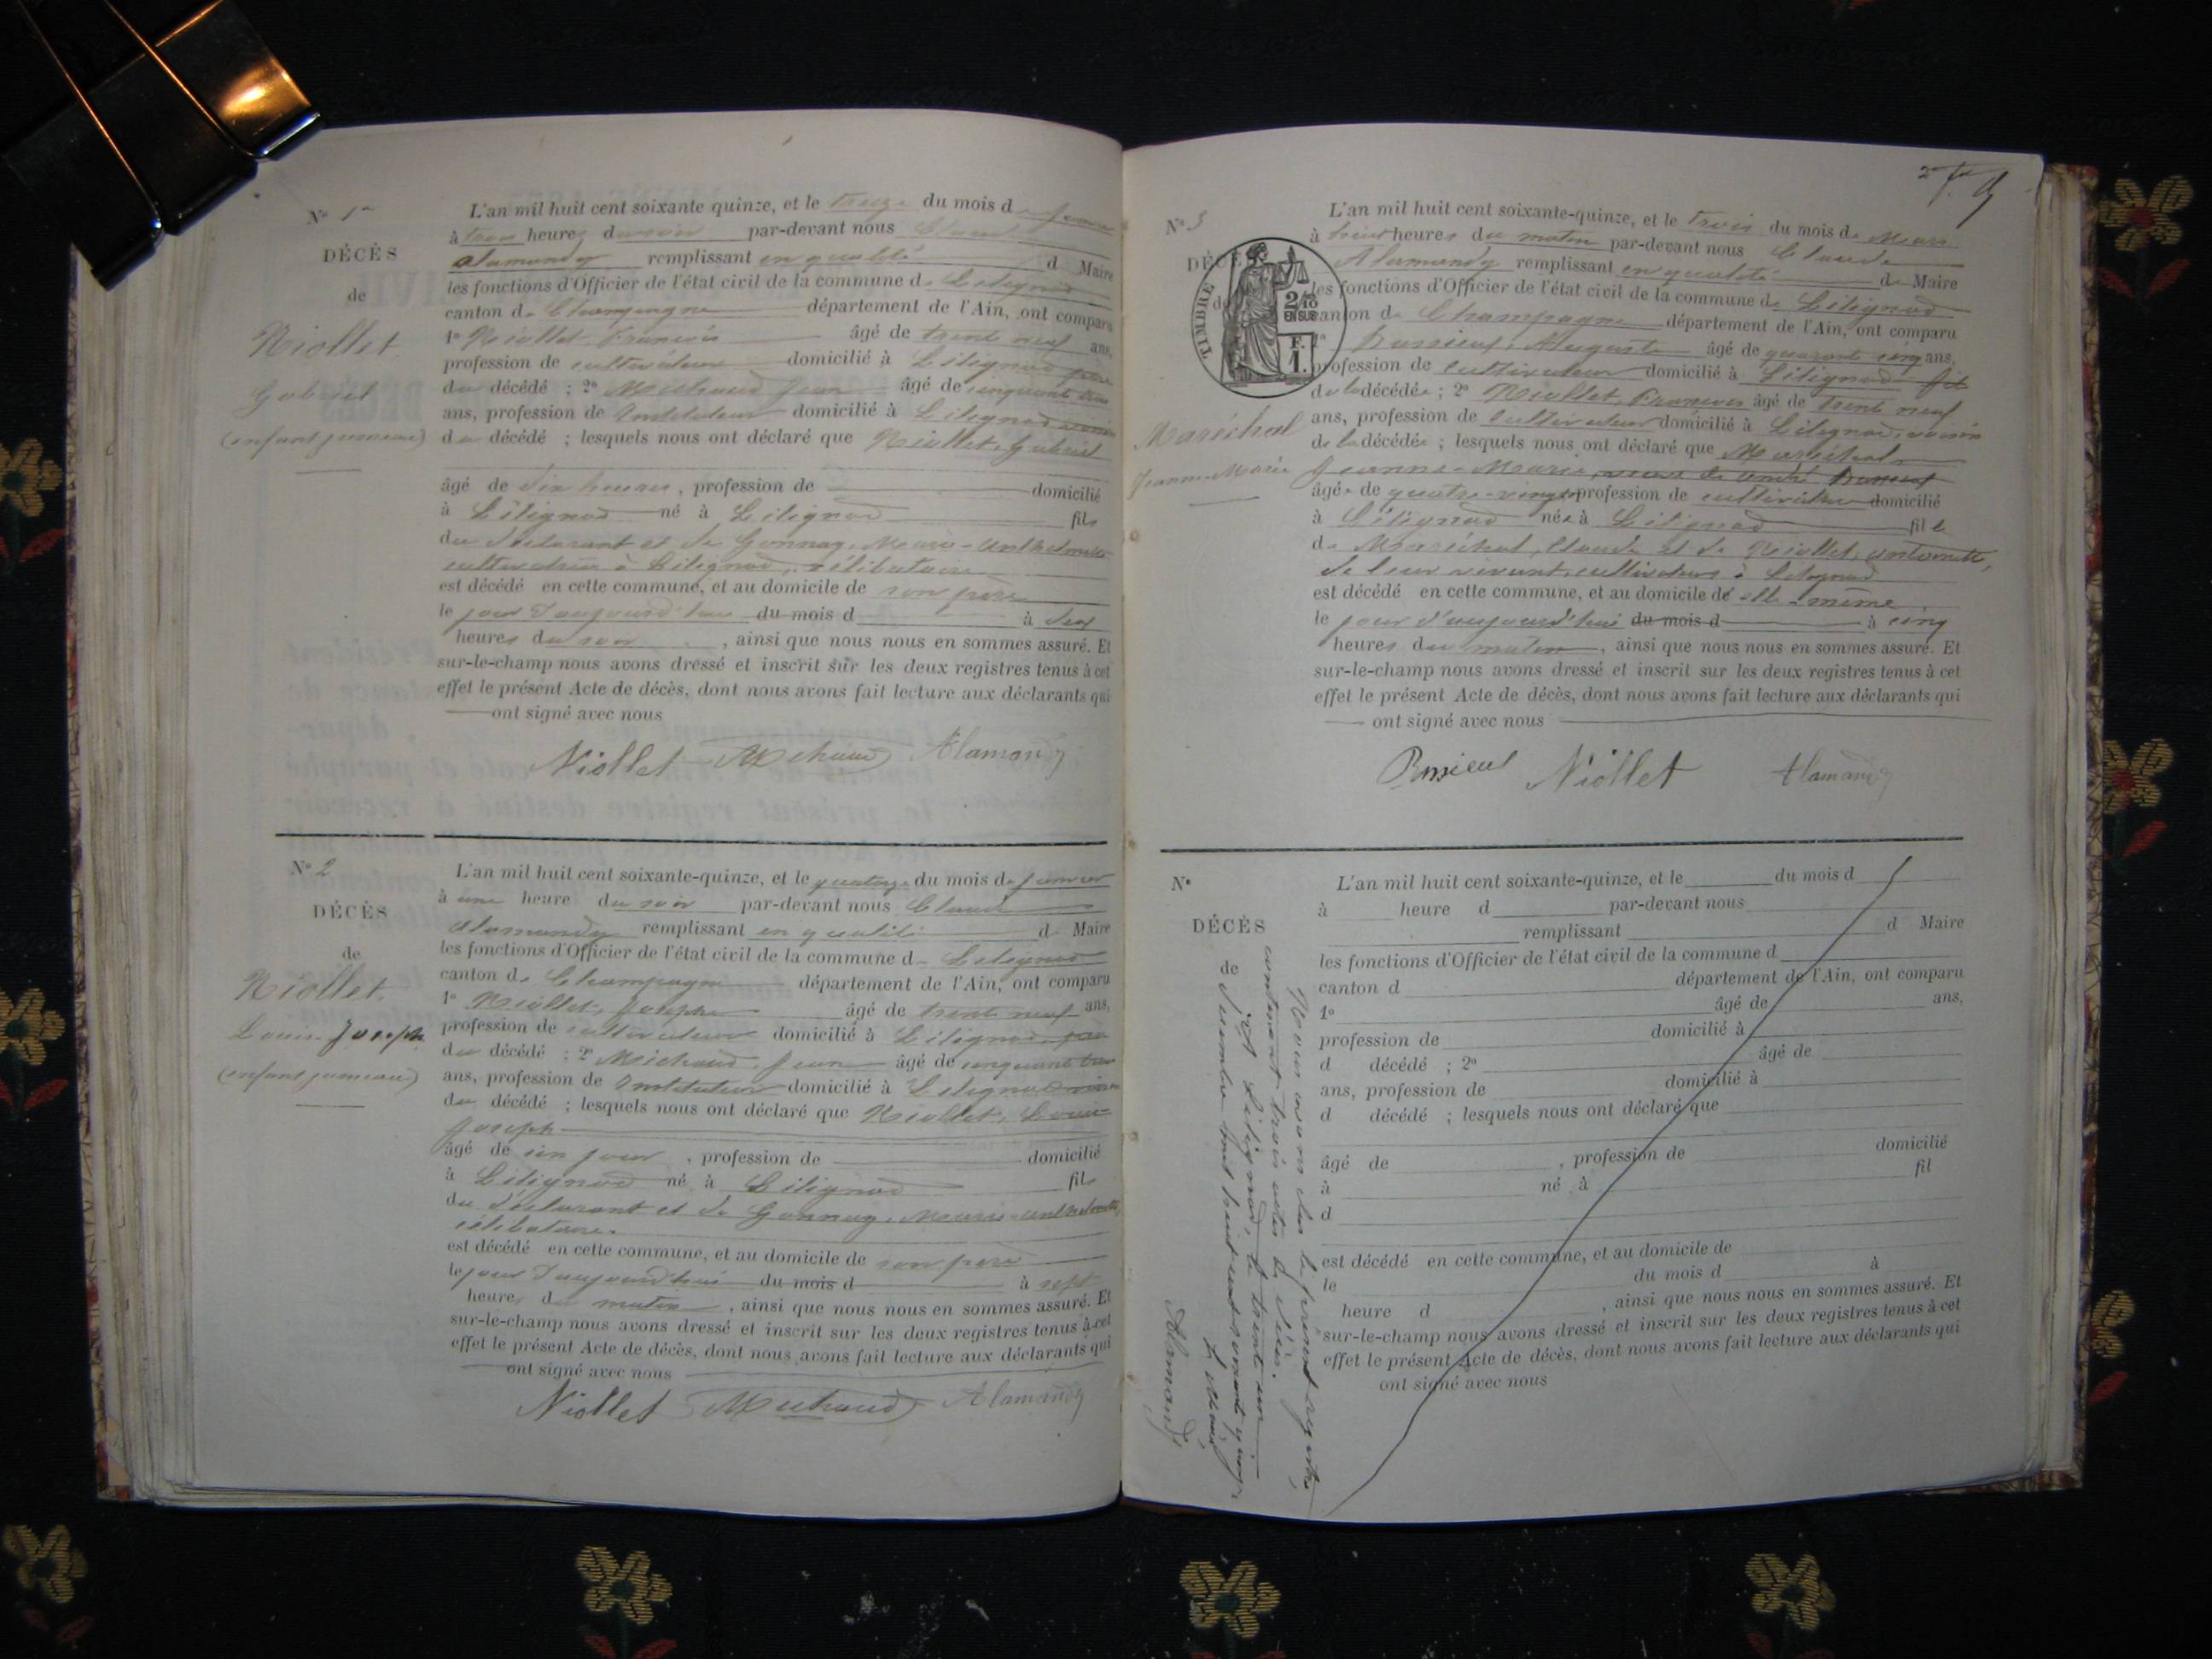 N° 1er
DÉCÈS
de
Niollet
Gabriel
(enfant jumeau)
L'an mil huit cent soixante quinze, et le treize du mois de janvier
à trois heures du soir par-devant nous Claude
Alamandy remplissant en qualité de Maire
les fonctions d'Officier de l'état civil de la commune de Lilignod
canton de Champagne département de l'Ain, ont comparu
1° Niollet, François âgé de trente neuf ans,
profession de cultivateur domicilié à Lilignod père
du décédé ; 2° Michaud Jean âgé de cinquante trois
ans, profession de Instituteur domicilié à Lilignod voisin
du décédé ; lesquels nous ont déclaré que Niollet, Gabriel
âgé de dix heures, profession de domicilié
à Lilignod né à Lilignod fils
du déclarant et de Gonnay, Marie-Anthelmette
cultivatrice à Lilignod, célibataire
est décédé en cette commune, et au domicile de son père
le jour d'aujourd'hui du mois d à deux
heures du soir, ainsi que nous nous en sommes assuré. Et
sur-le-champ nous avons dressé et inscrit sur les deux registres tenus à cet
effet le présent Acte de décès, dont nous avons fait lecture aux déclarants qui
ont signé avec nous
Niollet Michaud Alamandy
N° 2
DÉCÈS
de
Niollet
Louis-Joseph
(enfant jumeau)
L'an mil huit cent soixante-quinze, et le quatorze du mois de janvier
à une heure du soir par-devant nous Claude
Alamandy remplissant en qualité de Maire
les fonctions d'Officier de l'état civil de la commune de Lilignod
canton de Champagne département de l'Ain, ont comparu
1° Niollet, Joseph âgé de trente neuf ans,
profession de cultivateur domicilié à Lilignod père
du décédé ; 2° Michaud, Jean âgé de cinquante trois
ans, profession de Instituteur domicilié à Lilignod voisin
du décédé ; lesquels nous ont déclaré que Niollet, Louis-
Joseph
âgé de un jour, profession de domicilié
à Lilignod né à Lilignod fils
du déclarant et de Gonnay, Marie-Anthelmette,
célibataire.
est décédé en cette commune, et au domicile de son père
le jour d'aujourd'hui du mois d à sept
heures du matin, ainsi que nous nous en sommes assuré. Et
sur-le-champ nous avons dressé et inscrit sur les deux registres tenus à cet
effet le présent Acte de décès, dont nous avons fait lecture aux déclarants qui
ont signé avec nous
Niollet Michaud Alamandy
N° 3
DÉCÈS
de
TIMBRE
2/10
EN SUS
F.
1.
Maréchal
Jeanne-Marie
L'an mil huit cent soixante-quinze, et le trois du mois de Mars
à huit heures du matin par-devant nous Claude
Alamandy remplissant en qualité de Maire
les fonctions d'Officier de l'état civil de la commune de Lilignod
canton de Champagne département de l'Ain, ont comparu
1° Auguste âgé de quarante cinq ans,
profession de cultivateur domicilié à Lilignod fils
de la décédée ; 2° Niollet, François âgé de trente neuf
ans, profession de cultivateur domicilié à Lilignod, voisin
de la décédée ; lesquels nous ont déclaré que Maréchal
Jeanne-Marie, veuve de André
âgée de quatre-vingts profession de cultivatrice domicilié
à Lilignod née à Lilignod fille
de Maréchal, Claude et de Niollet, Antoinette,
de leur vivant cultivateurs à Lilignod
est décédé en cette commune, et au domicile de elle-même
le jour d'aujourd'hui du mois d à cinq
heures du matin, ainsi que nous nous en sommes assuré. Et
sur-le-champ nous avons dressé et inscrit sur les deux registres tenus à cet
effet le présent Acte de décès, dont nous avons fait lecture aux déclarants qui
ont signé avec nous
Niollet Alamandy
N°
DÉCÈS
de
L'an mil huit cent soixante-quinze, et le du mois d
à heure d par-devant nous
remplissant d Maire
les fonctions d'Officier de l'état civil de la commune d
canton d département de l'Ain, ont comparu
1° âgé de ans,
profession de domicilié à
d décédé ; 2° âgé de
ans, profession de domicilié à
d décédé ; lesquels nous ont déclaré que
âgé de , profession de domicilié
à né à fil
d
est décédé en cette commune, et au domicile de
le du mois d à
heure d , ainsi que nous nous en sommes assuré. Et
sur-le-champ nous avons dressé et inscrit sur les deux registres tenus à cet
effet le présent Acte de décès, dont nous avons fait lecture aux déclarants qui
ont signé avec nous
Nous avons clos le présent registre,
contenant trois actes de décès.
A Lilignod, le trente un
décembre mil huit cent soixante quinze
Le Maire
Alamandy